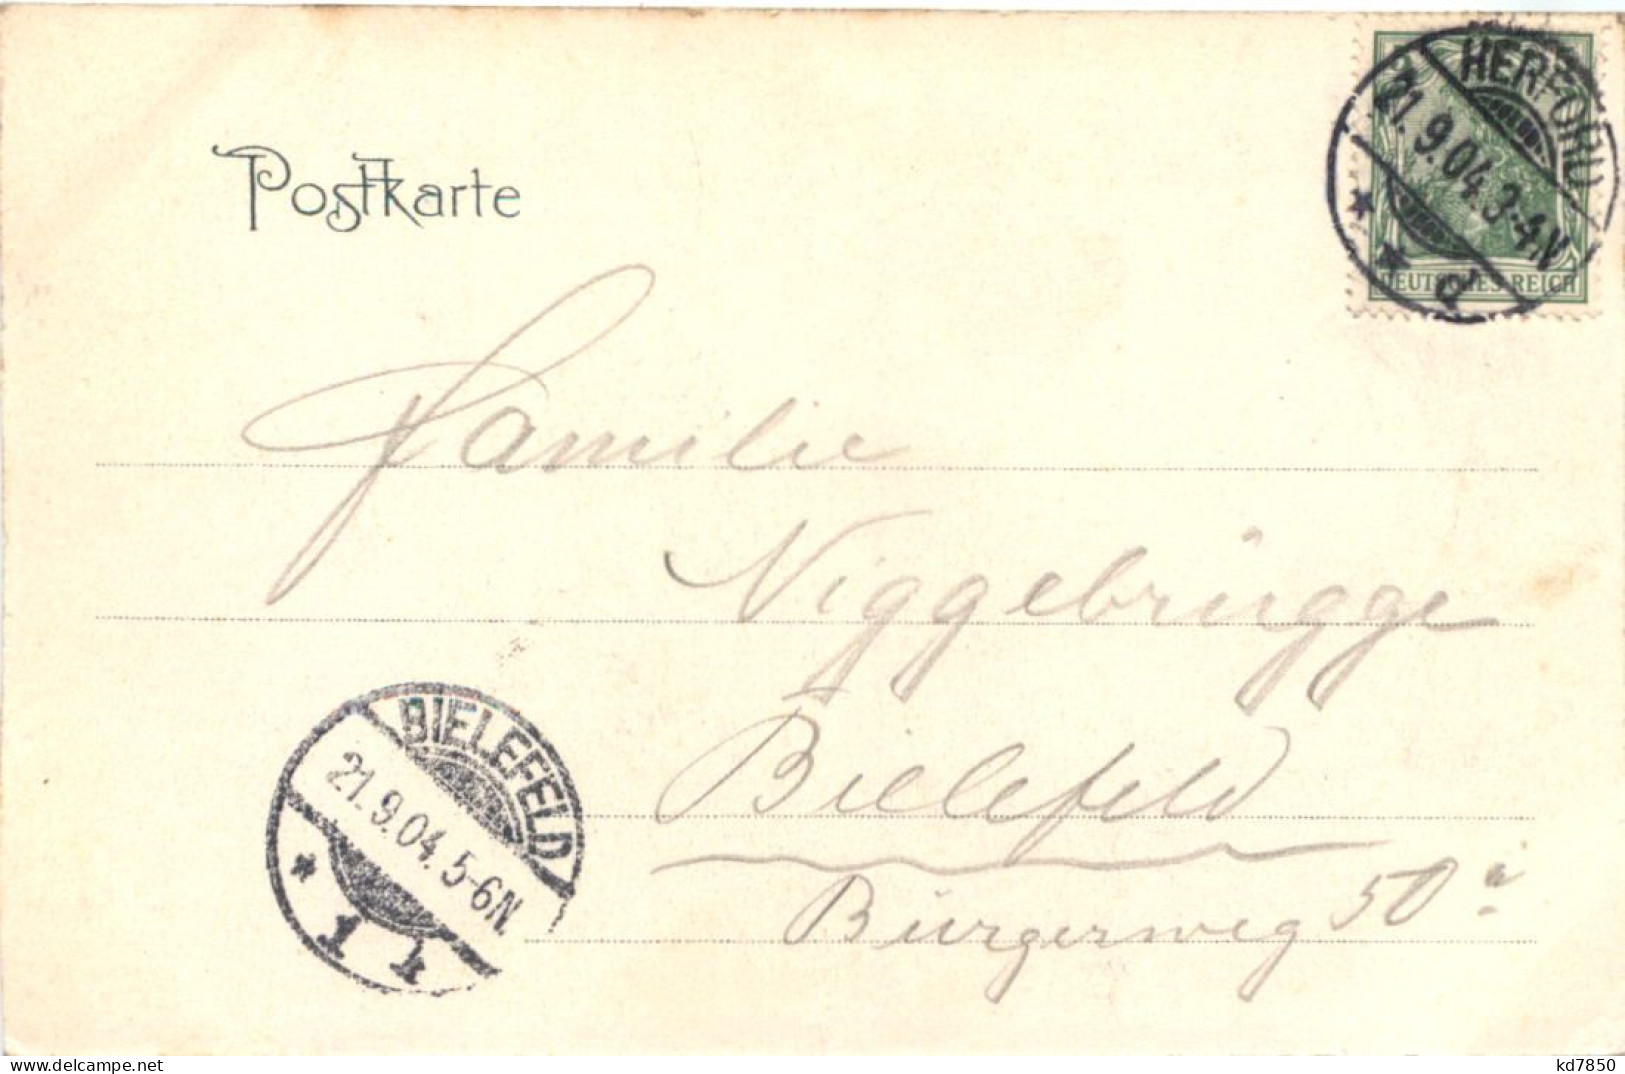 Postkarte
HERFORD
21.9.04.3-4N
* * d
DEUTSCHES REICH
Familie
Niggebrügge
Bielefeld
Bürgerweg 50a
BIELEFELD
21.9.04.5-6N.
* 1 k
kd7850